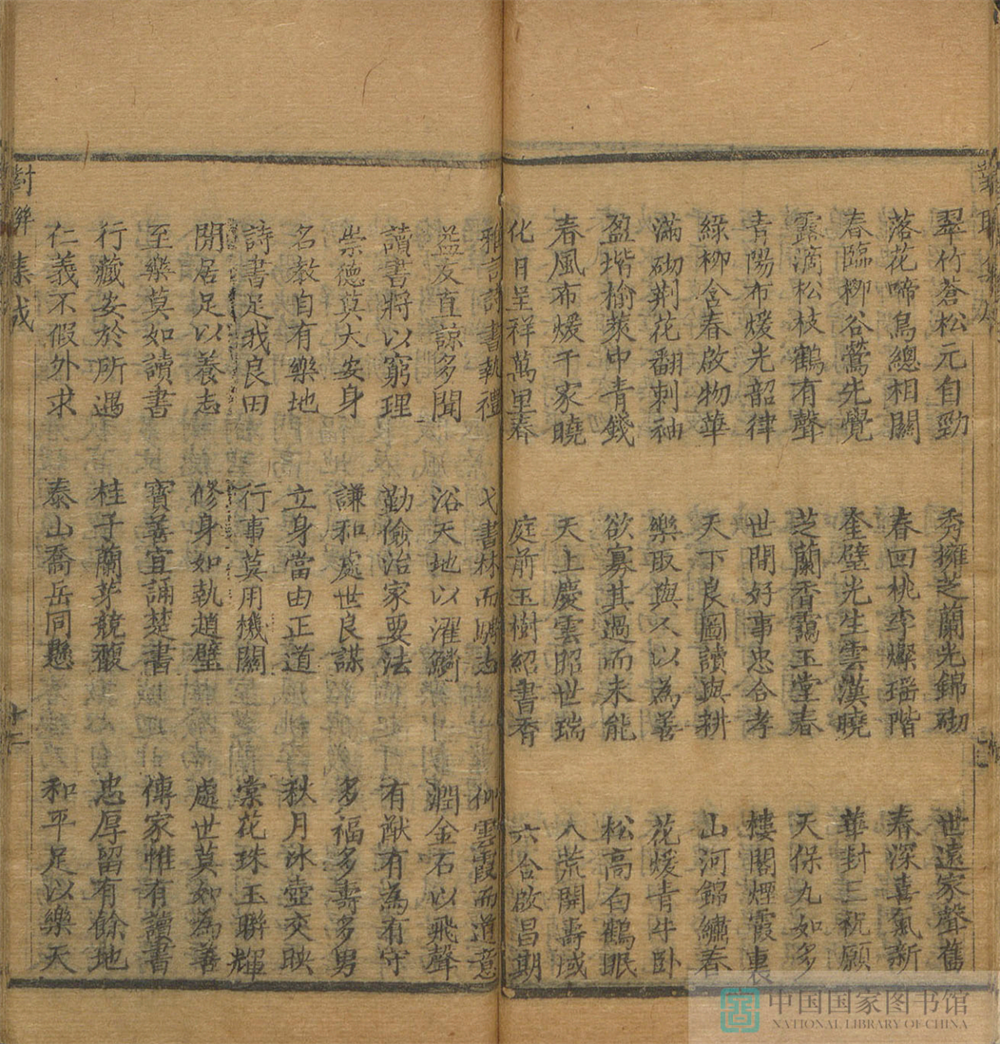 翠竹蒼松元自勁 秀擁芝蘭光錦砌 世遠家聲舊
落花啼鳥總相關 春回桃李燦瑤階 春深喜氣新
春臨柳谷鶯先覺 奎壁光生雲漢曉 華封三祝願
露滴松枝鶴有聲 芝蘭香靄玉堂春 天保九如多
青陽布煖光韶律 世間好事忠合孝 樓閣煙霞裏
綠柳含春啟物華 天下良圖讀與耕 山河錦繡春
滿砌荆花翻刺袖 樂取與人以為善 花煖青牛卧
盈堦榆莢中青錢 欲寡其過而未能 松高白鶴眠
春風布煖千家曉 天上慶雲昭世瑞 八荒開壽域
化日呈祥萬里春 庭前玉樹紹書香 六合啟昌期
雅言詩書執禮 弋書林而勵志 仰雲霞而道意
益友直諒多聞 浴天地以濯鱗 潤金石以飛聲
讀書將以窮理 勤儉治家要法 有猷有為有守
崇德莫大安身 謙和處世良謀 多福多壽多男
名教自有樂地 立身當由正道 秋月冰壺交映
詩書足我良田 行事莫用機關 棠花珠玉聯輝
閒居足以養志 修身如執趙璧 處世莫如為善
至樂莫如讀書 寶善宜誦楚書 傳家惟有讀書
行藏安於所遇 桂子蘭芽競馥 忠厚留有餘地
仁義不假外求 泰山喬岳同懸 和平足以樂天
對聯集成 十二
中国国家图书馆
NATIONAL LIBRARY OF CHINA